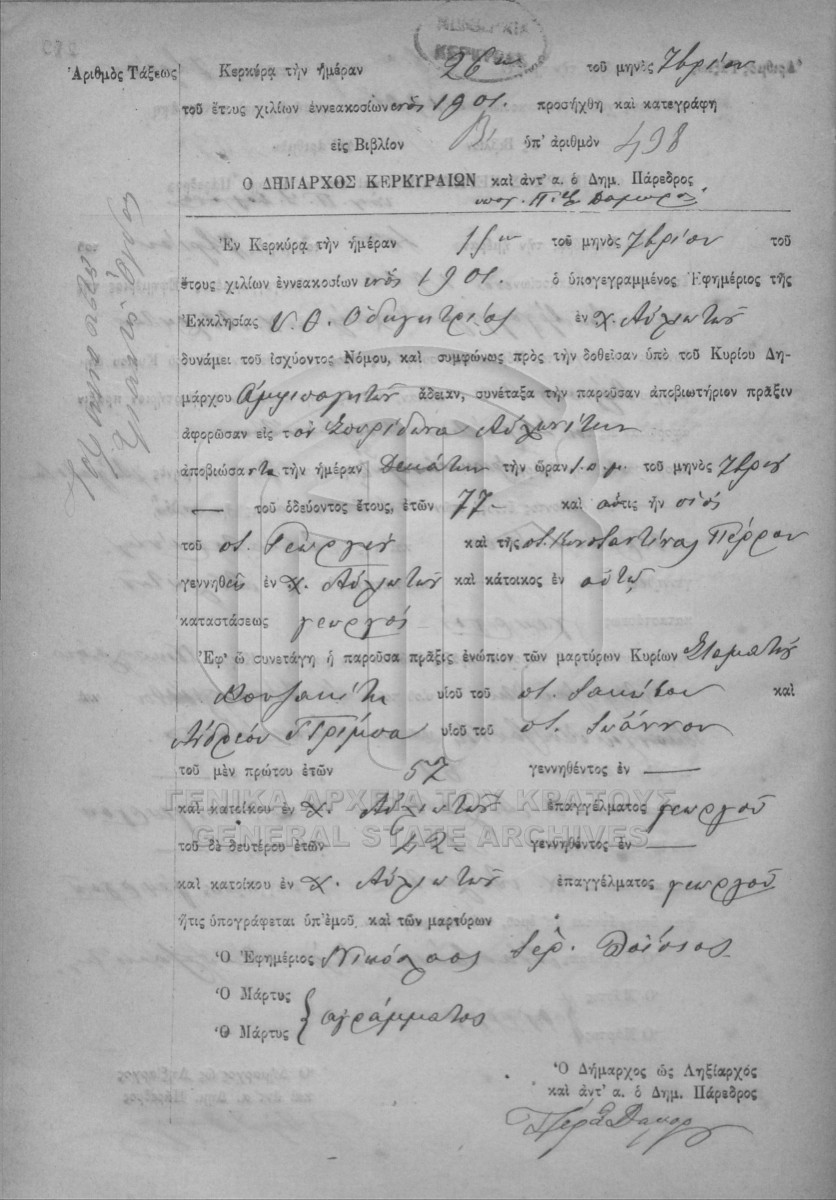 ΝΟΜΑΡΧΙΑ
ΚΕΡΚΥΡΑΣ
Ἀριθμὸς Τάξεως
Κερκύρᾳ τὴν ἡμέραν 26ην τοῦ μηνὸς 7βρίου
τοῦ ἔτους χιλίων ἐννεακοσίων ἑνός 1901. προσήχθη καὶ κατεγράφη
εἰς Βιβλίον Β' ὑπ' ἀριθμὸν 498
Ὁ ΔΗΜΑΡΧΟΣ ΚΕΡΚΥΡΑΙΩΝ καὶ ἀντ' α. ὁ Δημ. Πάρεδρος
Ἐν Κερκύρᾳ τὴν ἡμέραν 15ην τοῦ μηνὸς 7βρίου τοῦ
ἔτους χιλίων ἐννεακοσίων ἑνός 1901. ὁ ὑπογεγραμμένος Ἐφημέριος τῆς
Ἐκκλησίας Υ. Θ. Ὁδηγητρίας ἐν χ. Αὐλιωτῶν
δυνάμει τοῦ ἰσχύοντος Νόμου, καὶ συμφώνως πρὸς τὴν δοθεῖσαν ὑπὸ τοῦ Κυρίου Δη-
μάρχου Ἀμφιπαγητῶν ἄδειαν, συνέταξα τὴν παροῦσαν ἀποβιωτήριον πρᾶξιν
ἀφορῶσαν εἰς τὸν Σπυρίδωνα Αὐλωνίτην
ἀποβιώσαντα τὴν ἡμέραν Δεκάτην τὴν ὥραν 1. π. μ. τοῦ μηνὸς 7βρίου
— τοῦ ὁδεύοντος ἔτους, ἐτῶν 77- καὶ ὅστις ἦν υἱός
τοῦ ποτ. Γεωργίου καὶ τῆς ποτ. Κωνσταντίνας Πέρρου
γεννηθείς ἐν χ. Αὐλιωτῶν καὶ κάτοικος ἐν αὐτῷ
καταστάσεως γεωργός
Ἐφ' ᾧ συνετάγη ἡ παροῦσα πρᾶξις ἐνώπιον τῶν μαρτύρων Κυρίων Σταμάτη
Κουζακίτη υἱοῦ τοῦ ποτ. Ἰακώβου καὶ
Ἀνδρέου Γρίμπα υἱοῦ τοῦ ποτ. Ἰωάννου
τοῦ μὲν πρώτου ἐτῶν 57 γεννηθέντος ἐν —
καὶ κατοίκου ἐν χ. Αὐλιωτῶν ἐπαγγέλματος γεωργοῦ
ΓΕΝΙΚΑ ΑΡΧΕΙΑ ΤΟΥ ΚΡΑΤΟΥΣ
GENERAL STATE ARCHIVES
τοῦ δὲ δευτέρου ἐτῶν 42- γεννηθέντος ἐν —
καὶ κατοίκου ἐν χ. Αὐλιωτῶν ἐπαγγέλματος γεωργοῦ
ἥτις ὑπογράφεται ὑπ' ἐμοῦ καὶ τῶν μαρτύρων
Ὁ Ἐφημέριος Νικόλαος Ἱερ. Παΐσιος
Ὁ Μάρτυς
Ὁ Μάρτυς
ἀγράμματος
Ὁ Δήμαρχος ὡς Ληξίαρχος
καὶ ἀντ' α. ὁ Δημ. Πάρεδρος